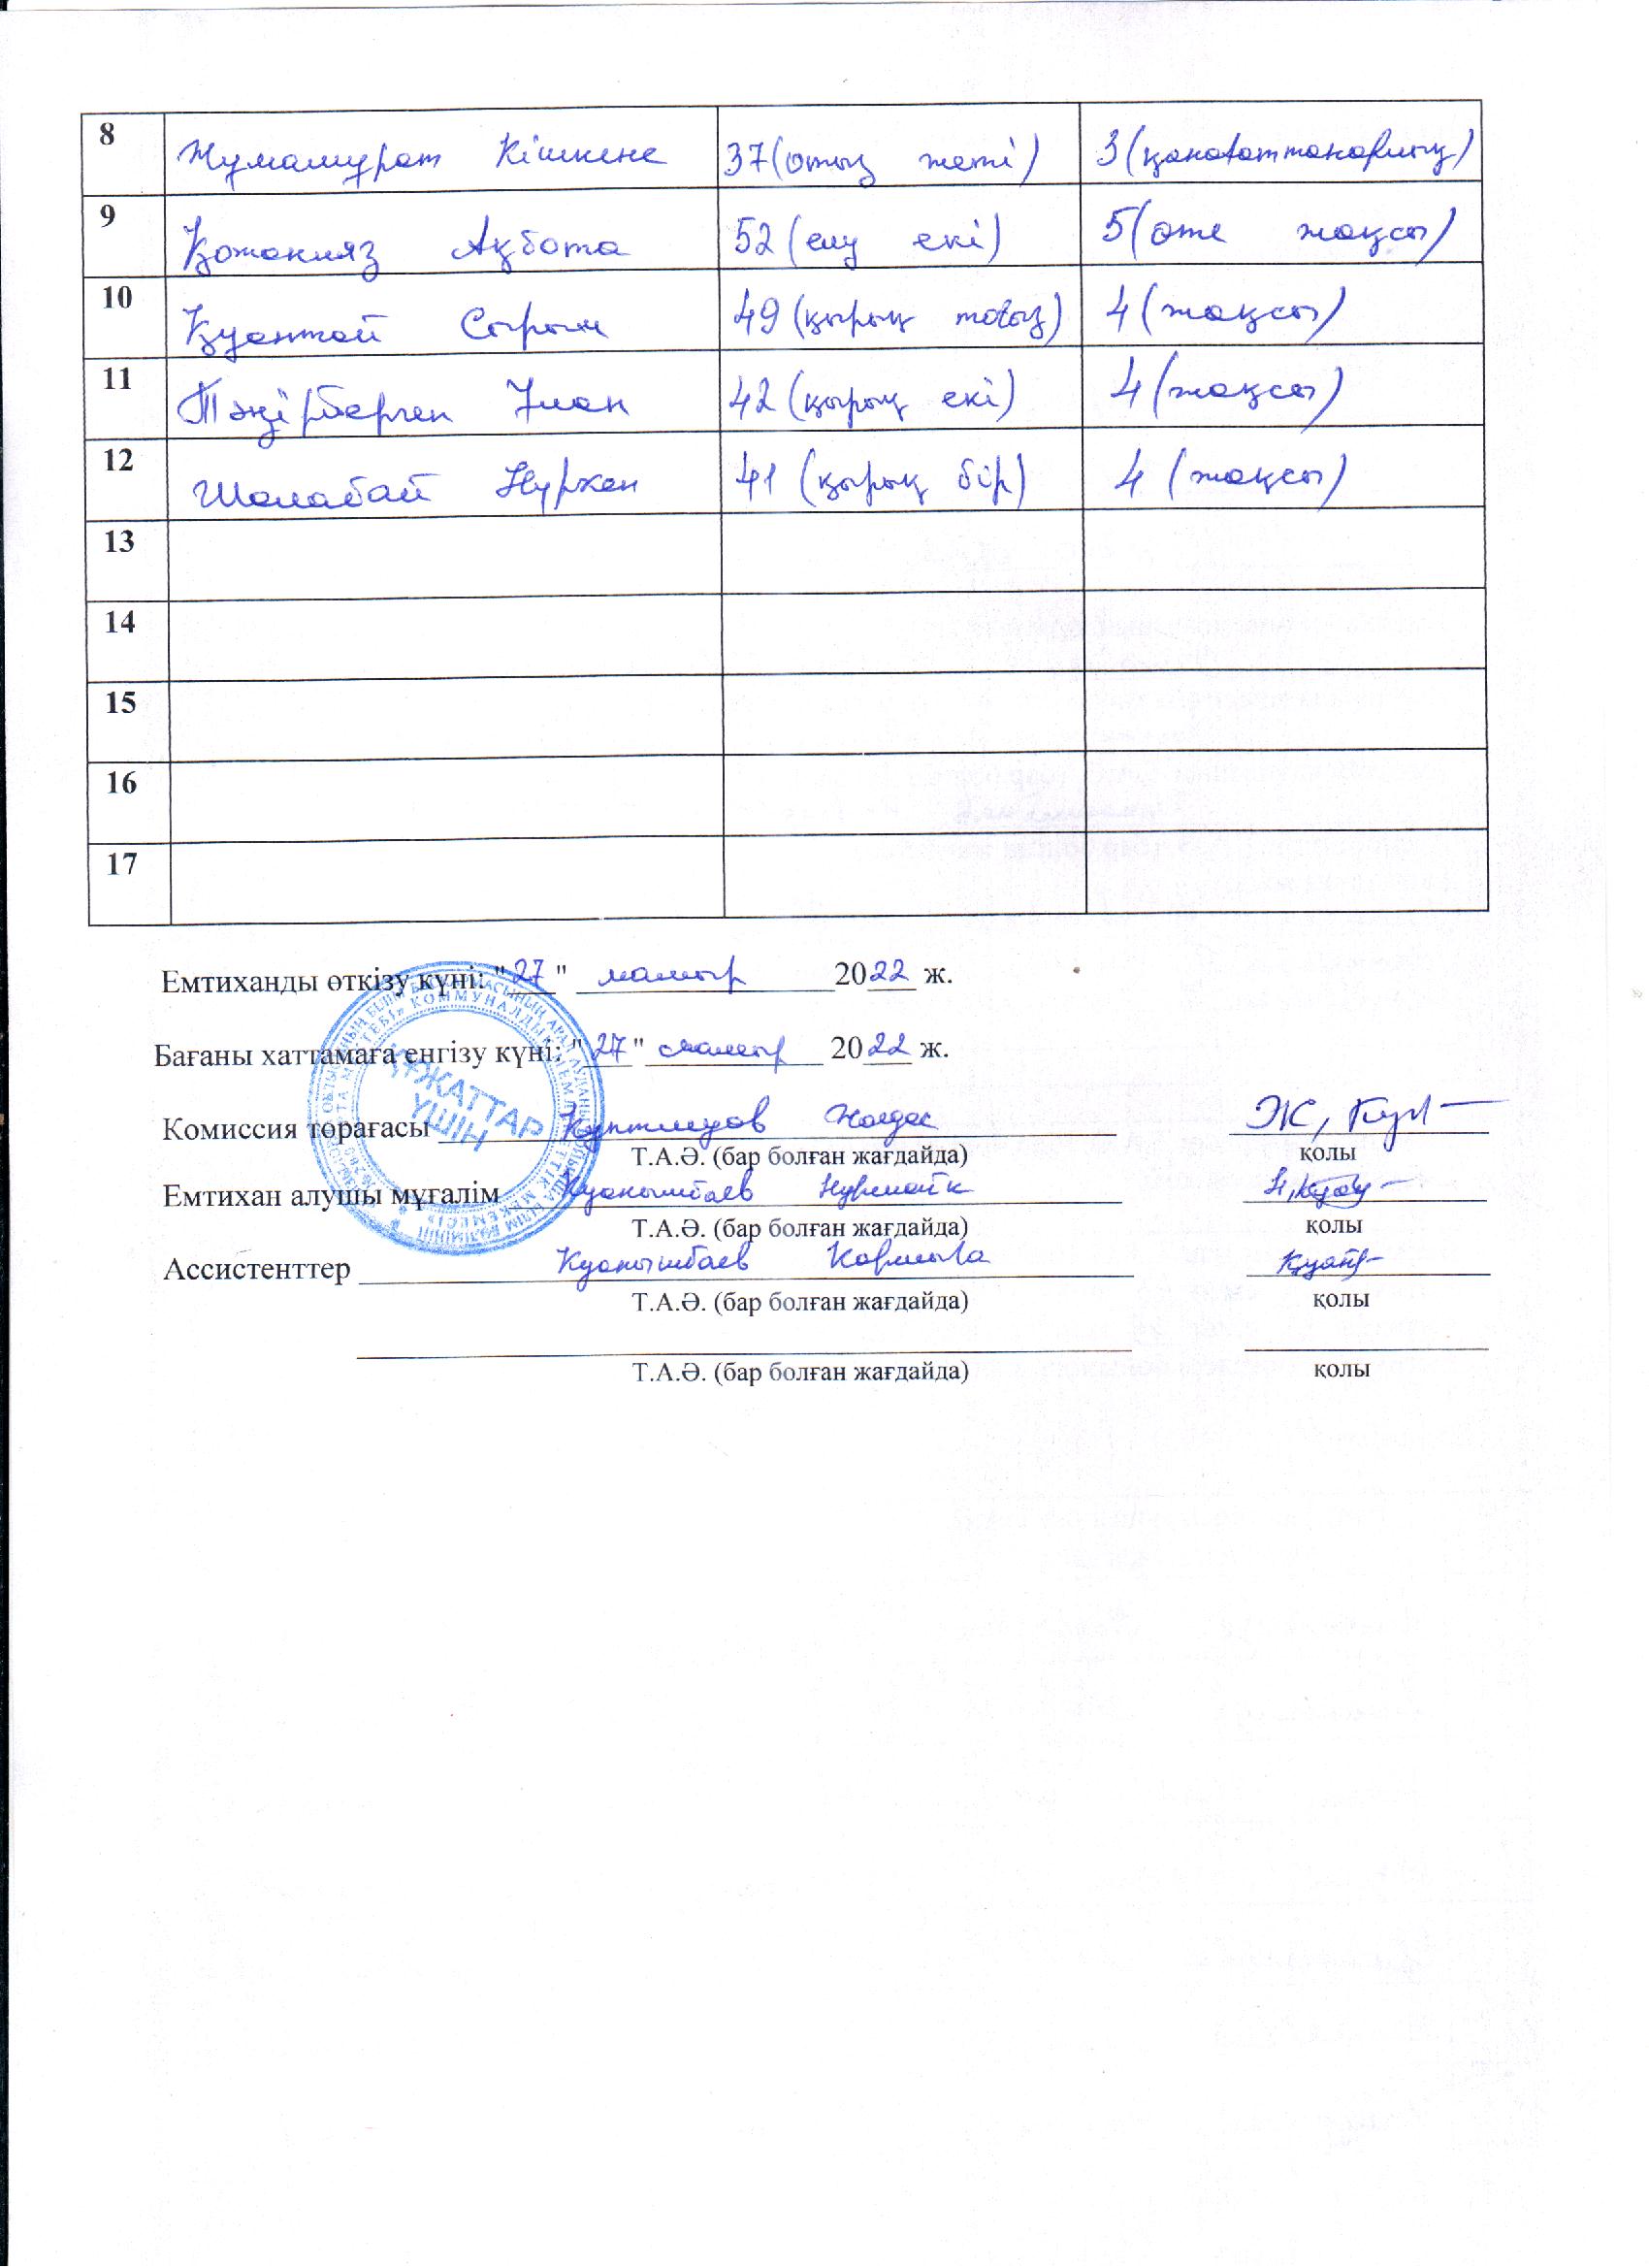 8 Жұмамұрат Кішкене 37(отыз жеті) 3(қанағаттанарлық)
9 Қожанияз Ақбота 52 (елу екі) 5(өте жақсы)
10 Қуантай Сырым 49 (қырық тоғыз) 4 (жақсы)
11 Тәңірберген Ұлан 42 (қырық екі) 4 (жақсы)
12 Шалабай Нұрхан 41 (қырық бір) 4 (жақсы)
13
14
15
16
17
Емтиханды өткізу күні: "27" мамыр 2022 ж.
Бағаны хаттамаға енгізу күні: "27" мамыр 2022 ж.
ҚҰЖАТТАР
ҮШІН
Комиссия төрағасы Жолдас
Т.А.Ә. (бар болған жағдайда) қолы
Емтихан алушы мұғалім Қуанышбаев
Т.А.Ә. (бар болған жағдайда) қолы
Ассистенттер Қуанышбаев
Т.А.Ә. (бар болған жағдайда) қолы
Т.А.Ә. (бар болған жағдайда) қолы